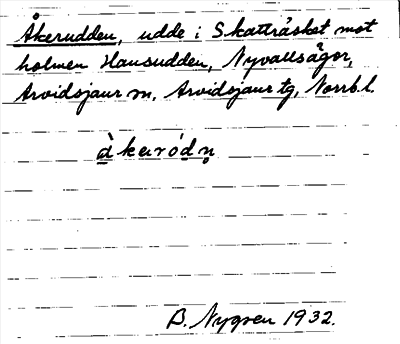 Åkerudden, udde i Skatträsket mot
holmen Hansudden, Nyvallsågor,
Arvidsjaur sn, Arvidsjaur tg, Norrb. l.
B. Nygren 1932.